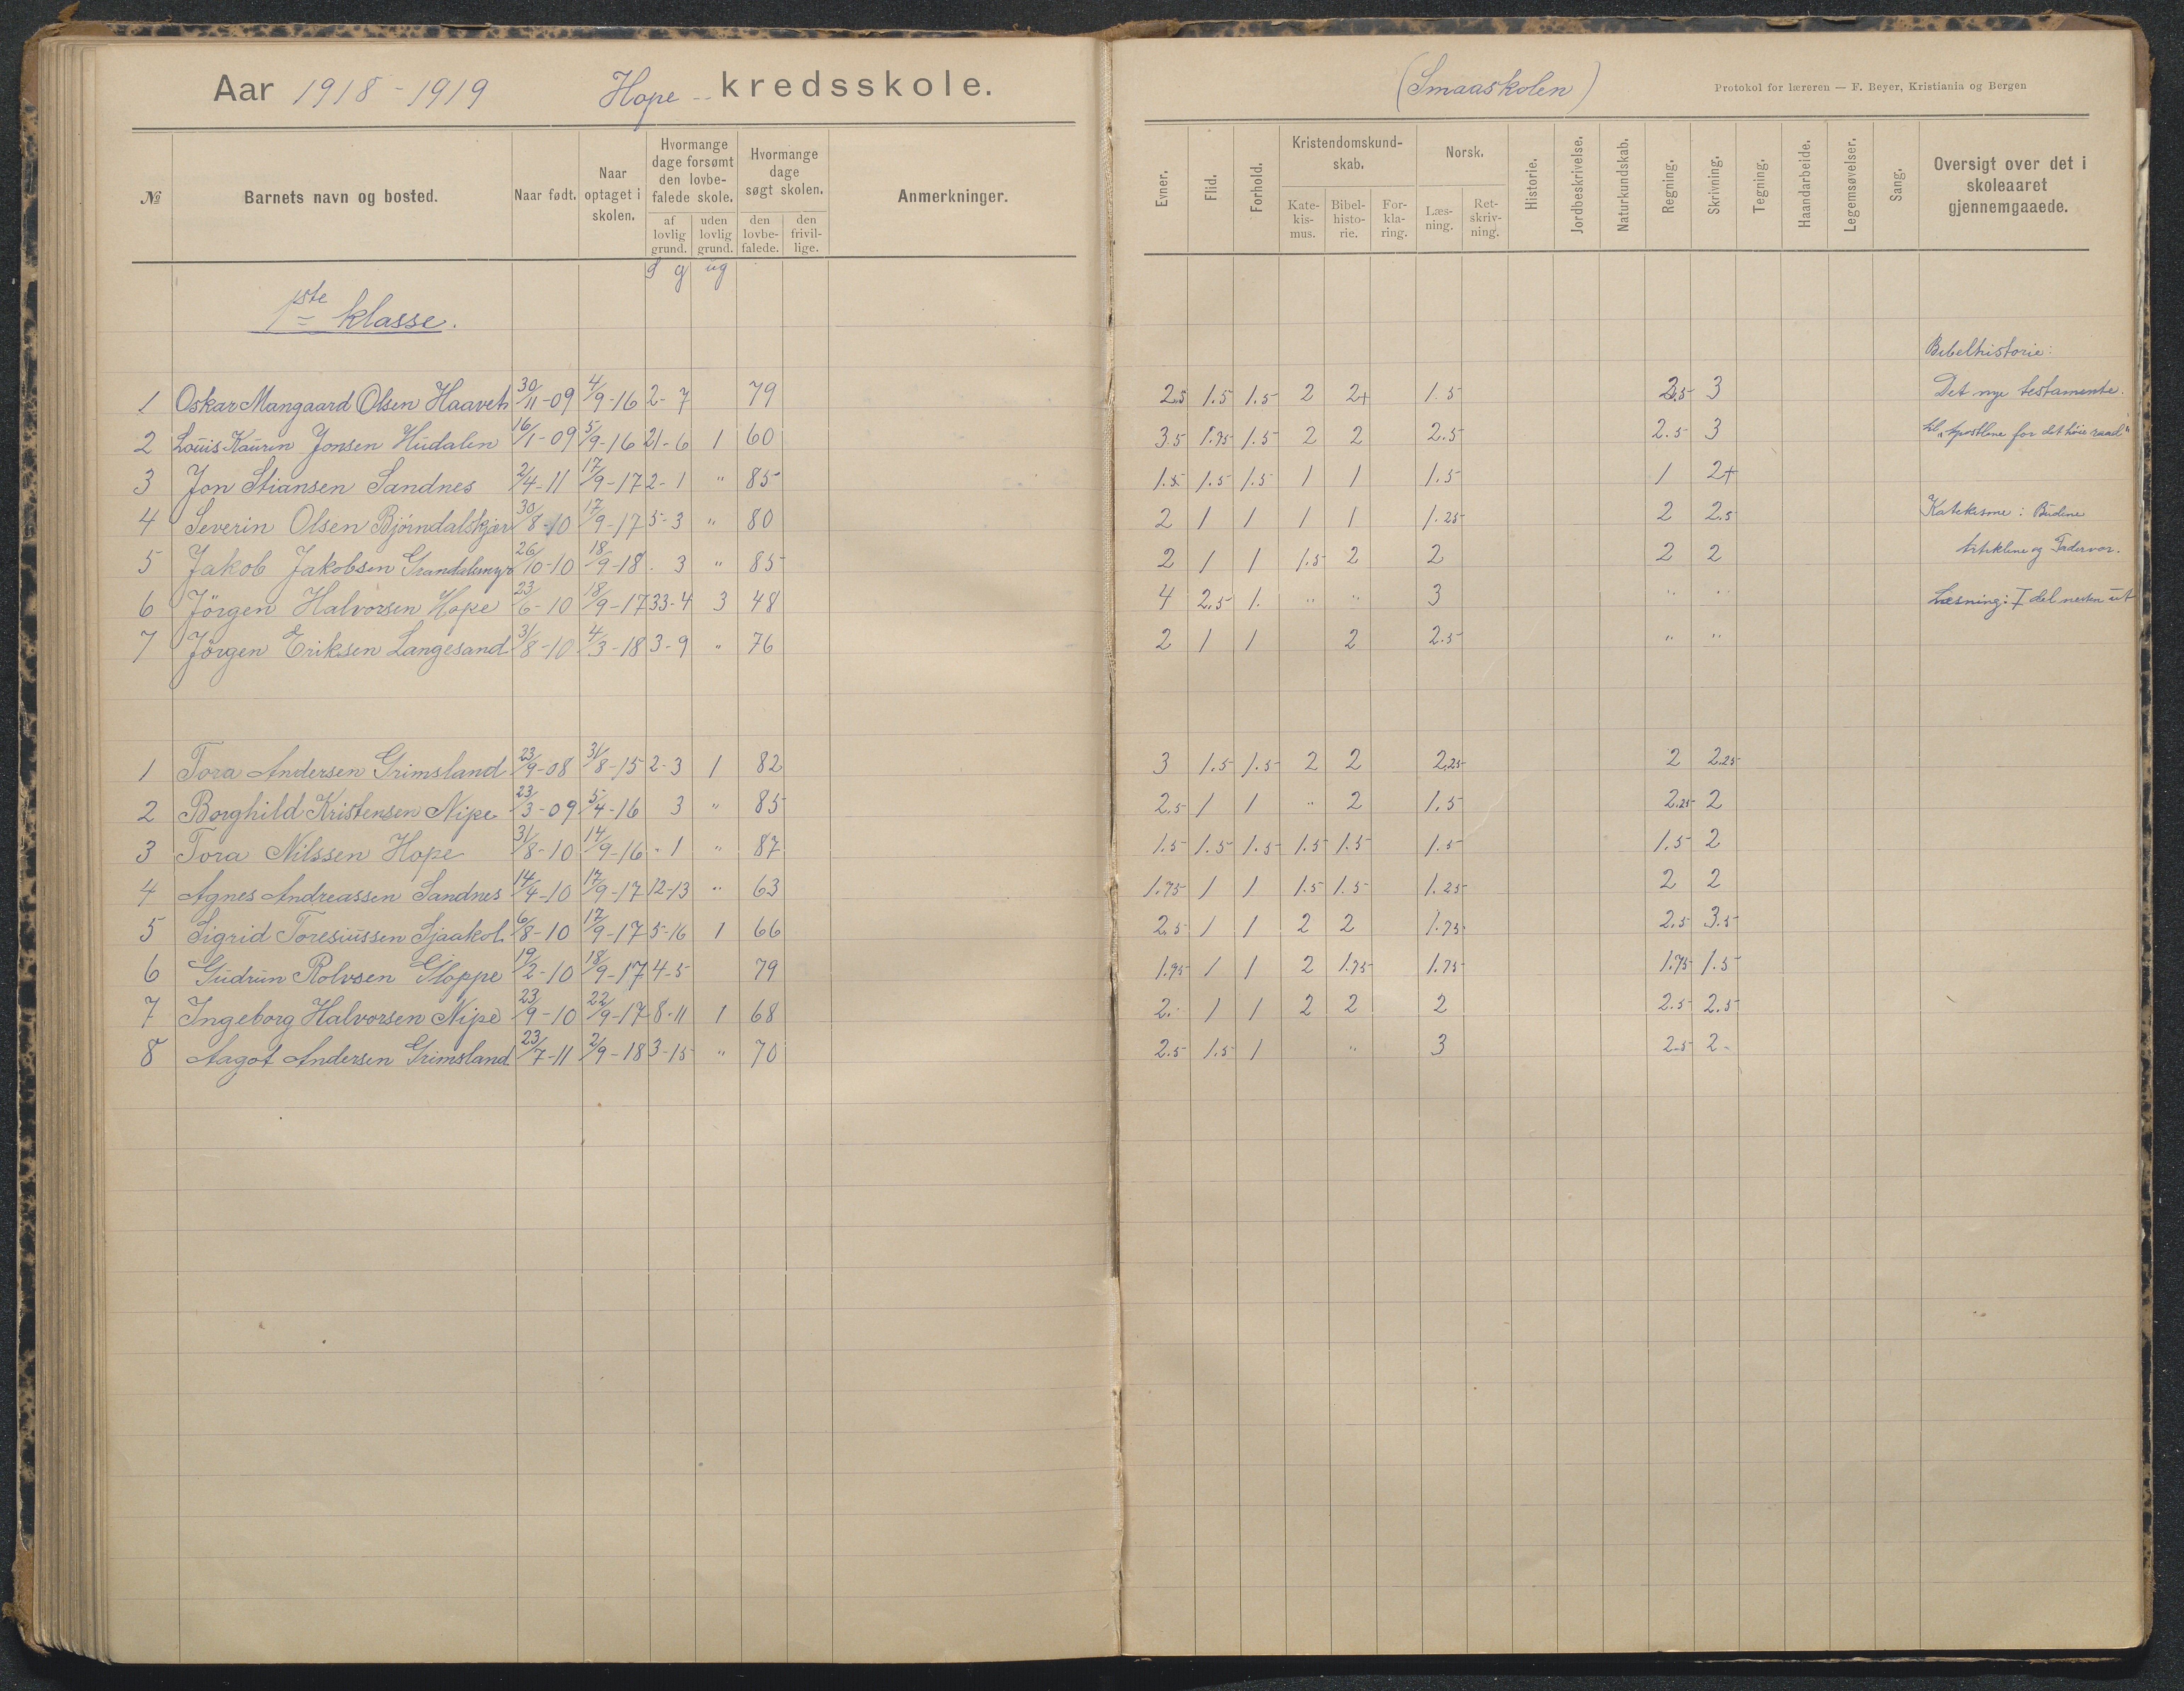 Aar 1918-1919 Hope kredsskole.
(Smaaskolen)
Protokol for læreren — F. Beyer, Kristiania og Bergen
№ Barnets navn og bosted. Naar født. Naar optaget i skolen. Hvormange dage forsømt den lovbefalede skole. af lovlig grund. uden lovlig grund. Hvormange dage søgt skolen. den lovbefalede. den frivillige. Anmerkninger.
Evner. Flid. Forhold. Kristendomskundskab. Katekismus. Bibelhistorie. Forklaring. Norsk. Læsning. Retskrivning. Historie. Jordbeskrivelse. Naturkundskab. Regning. Skrivning. Tegning. Haandarbeide. Legemsøvelser. Sang. Oversigt over det i skoleaaret gjennemgaaede.
g ug
1ste klasse.
Bibelhistorie:
1 Oskar Mangaard Olsen Haaveh 30/11-09 4/9-16 2-7 79 2.5 1.5 1.5 2 2+ 1.5 2.5 3 Det nye testamente.
2 Louis Kaurin Jonsen Hudalen 16/1-09 5/9-16 21-6 1 60 3.5 1.75 1.5 2 2 2.5 2.5 3 til „Apostlene for det høie raad"
3 Jon Stiansen Sandnes 2/4-11 17/9-17 2-1 " 85 1.5 1.5 1.5 1 1 1.5 1 2+
4 Severin Olsen Bjørndalskjær 30/8-10 17/9-17 5-3 " 80 2 1 1 1 1 1.25 2 2.5 Katekisme: Budene
5 Jakob Jakobsen Grandalsmyr 26/10-10 18/9-18 . 3 " 85 2 1 1 1.5 2 2 2 2 Artiklene og Fadervor.
6 Jörgen Halvorsen Hope 23/6-10 18/9-17 33-4 3 48 4 2.5 1. " " 3 " " Læsning: I del nesten ut
7 Jörgen Eriksen Langesand 31/8-10 4/3-18 3-9 " 76 2 1 1 2 2.5 " "
1 Tora Andersen Grimsland 23/9-08 31/8-15 2-3 1 82 3 1.5 1.5 2 2 2.25 2 2.25
2 Borghild Kristensen Nipe 23/3-09 5/4-16 3 " 85 2.5 1 1 " 2 1.5 2.25 2
3 Tora Nilssen Hope 31/8-10 14/9-16 - 1 " 87 1.5 1.5 1.5 1.5 1.5 1.5 1.5 2
4 Agnes Andreassen Sandnes 14/4-10 17/9-17 12-13 " 63 1.75 1 1 1.5 1.5 1.25 2 2
5 Sigrid Toresiussen Sjaakol. 6/8-10 17/9-17 5-16 1 66 2.5 1 1 2 2 1.75 2.5 3.5
6 Gudrun Rolvsen Gloppe 19/2-10 18/9-17 4-5 79 1.75 1 1 2 1.75 1.75 1.75 1.5
7 Ingeborg Halvorsen Nipe 23/9-10 22/9-17 8-11 1 68 2. 1 1 2 2 2 2.5 2.5
8 Aagot Andersen Grimsland 23/7-11 2/9-18 3-15 " 70 2.5 1.5 1 " 3 2.5 2-